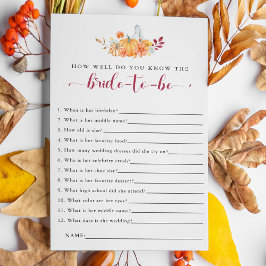 HOW WELL DO YOU KNOW THE
bride-to-be
1. When is her birthday?
2. What is her middle name?
3. How old is she?
4. What is her favorite food?
5. How many wedding dresses did she try on?
6. Who is her celebrity crush?
7. What is her shoe size?
8. What is her favorite dessert?
9. What high school did she attend?
10. What color are her eyes?
11. What is her maiden name?
12. What date is the wedding?
NAME: